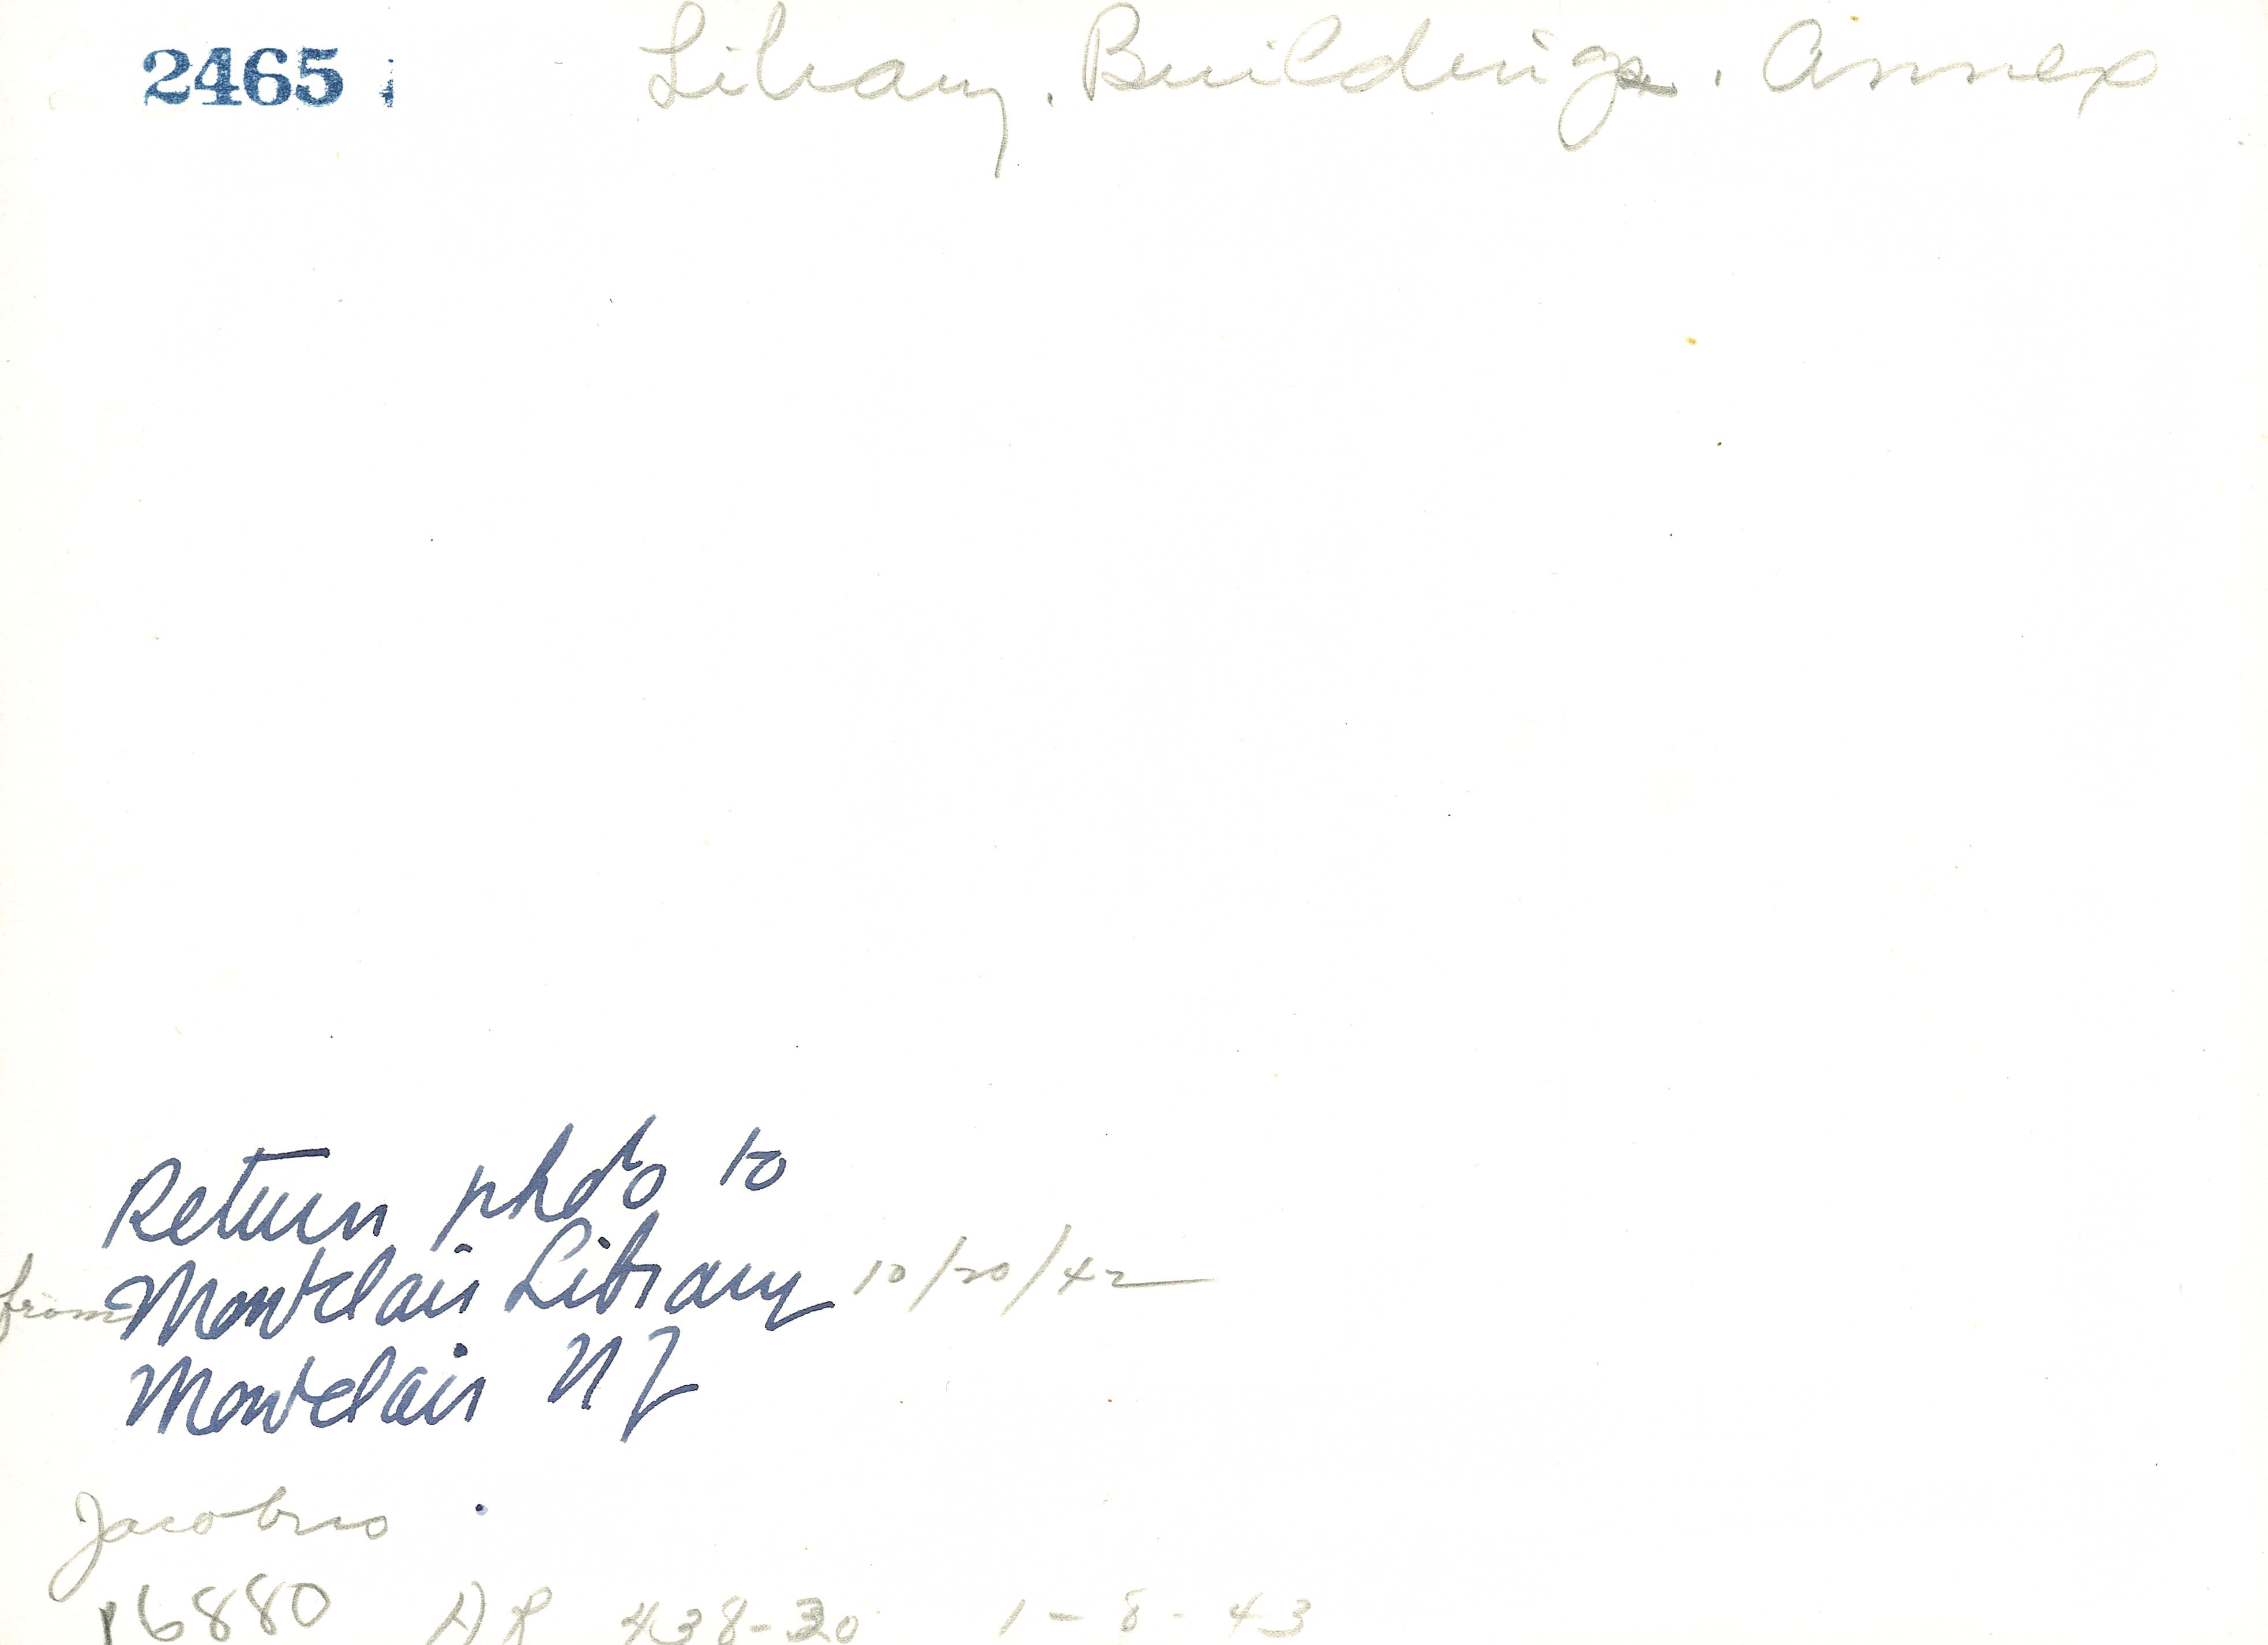 2465
Library. Buildings. Annex
Return photo to
from Montclair Library 10/20/42
Montclair NJ
Jacobus
16880 AR 438-20 1-8-43